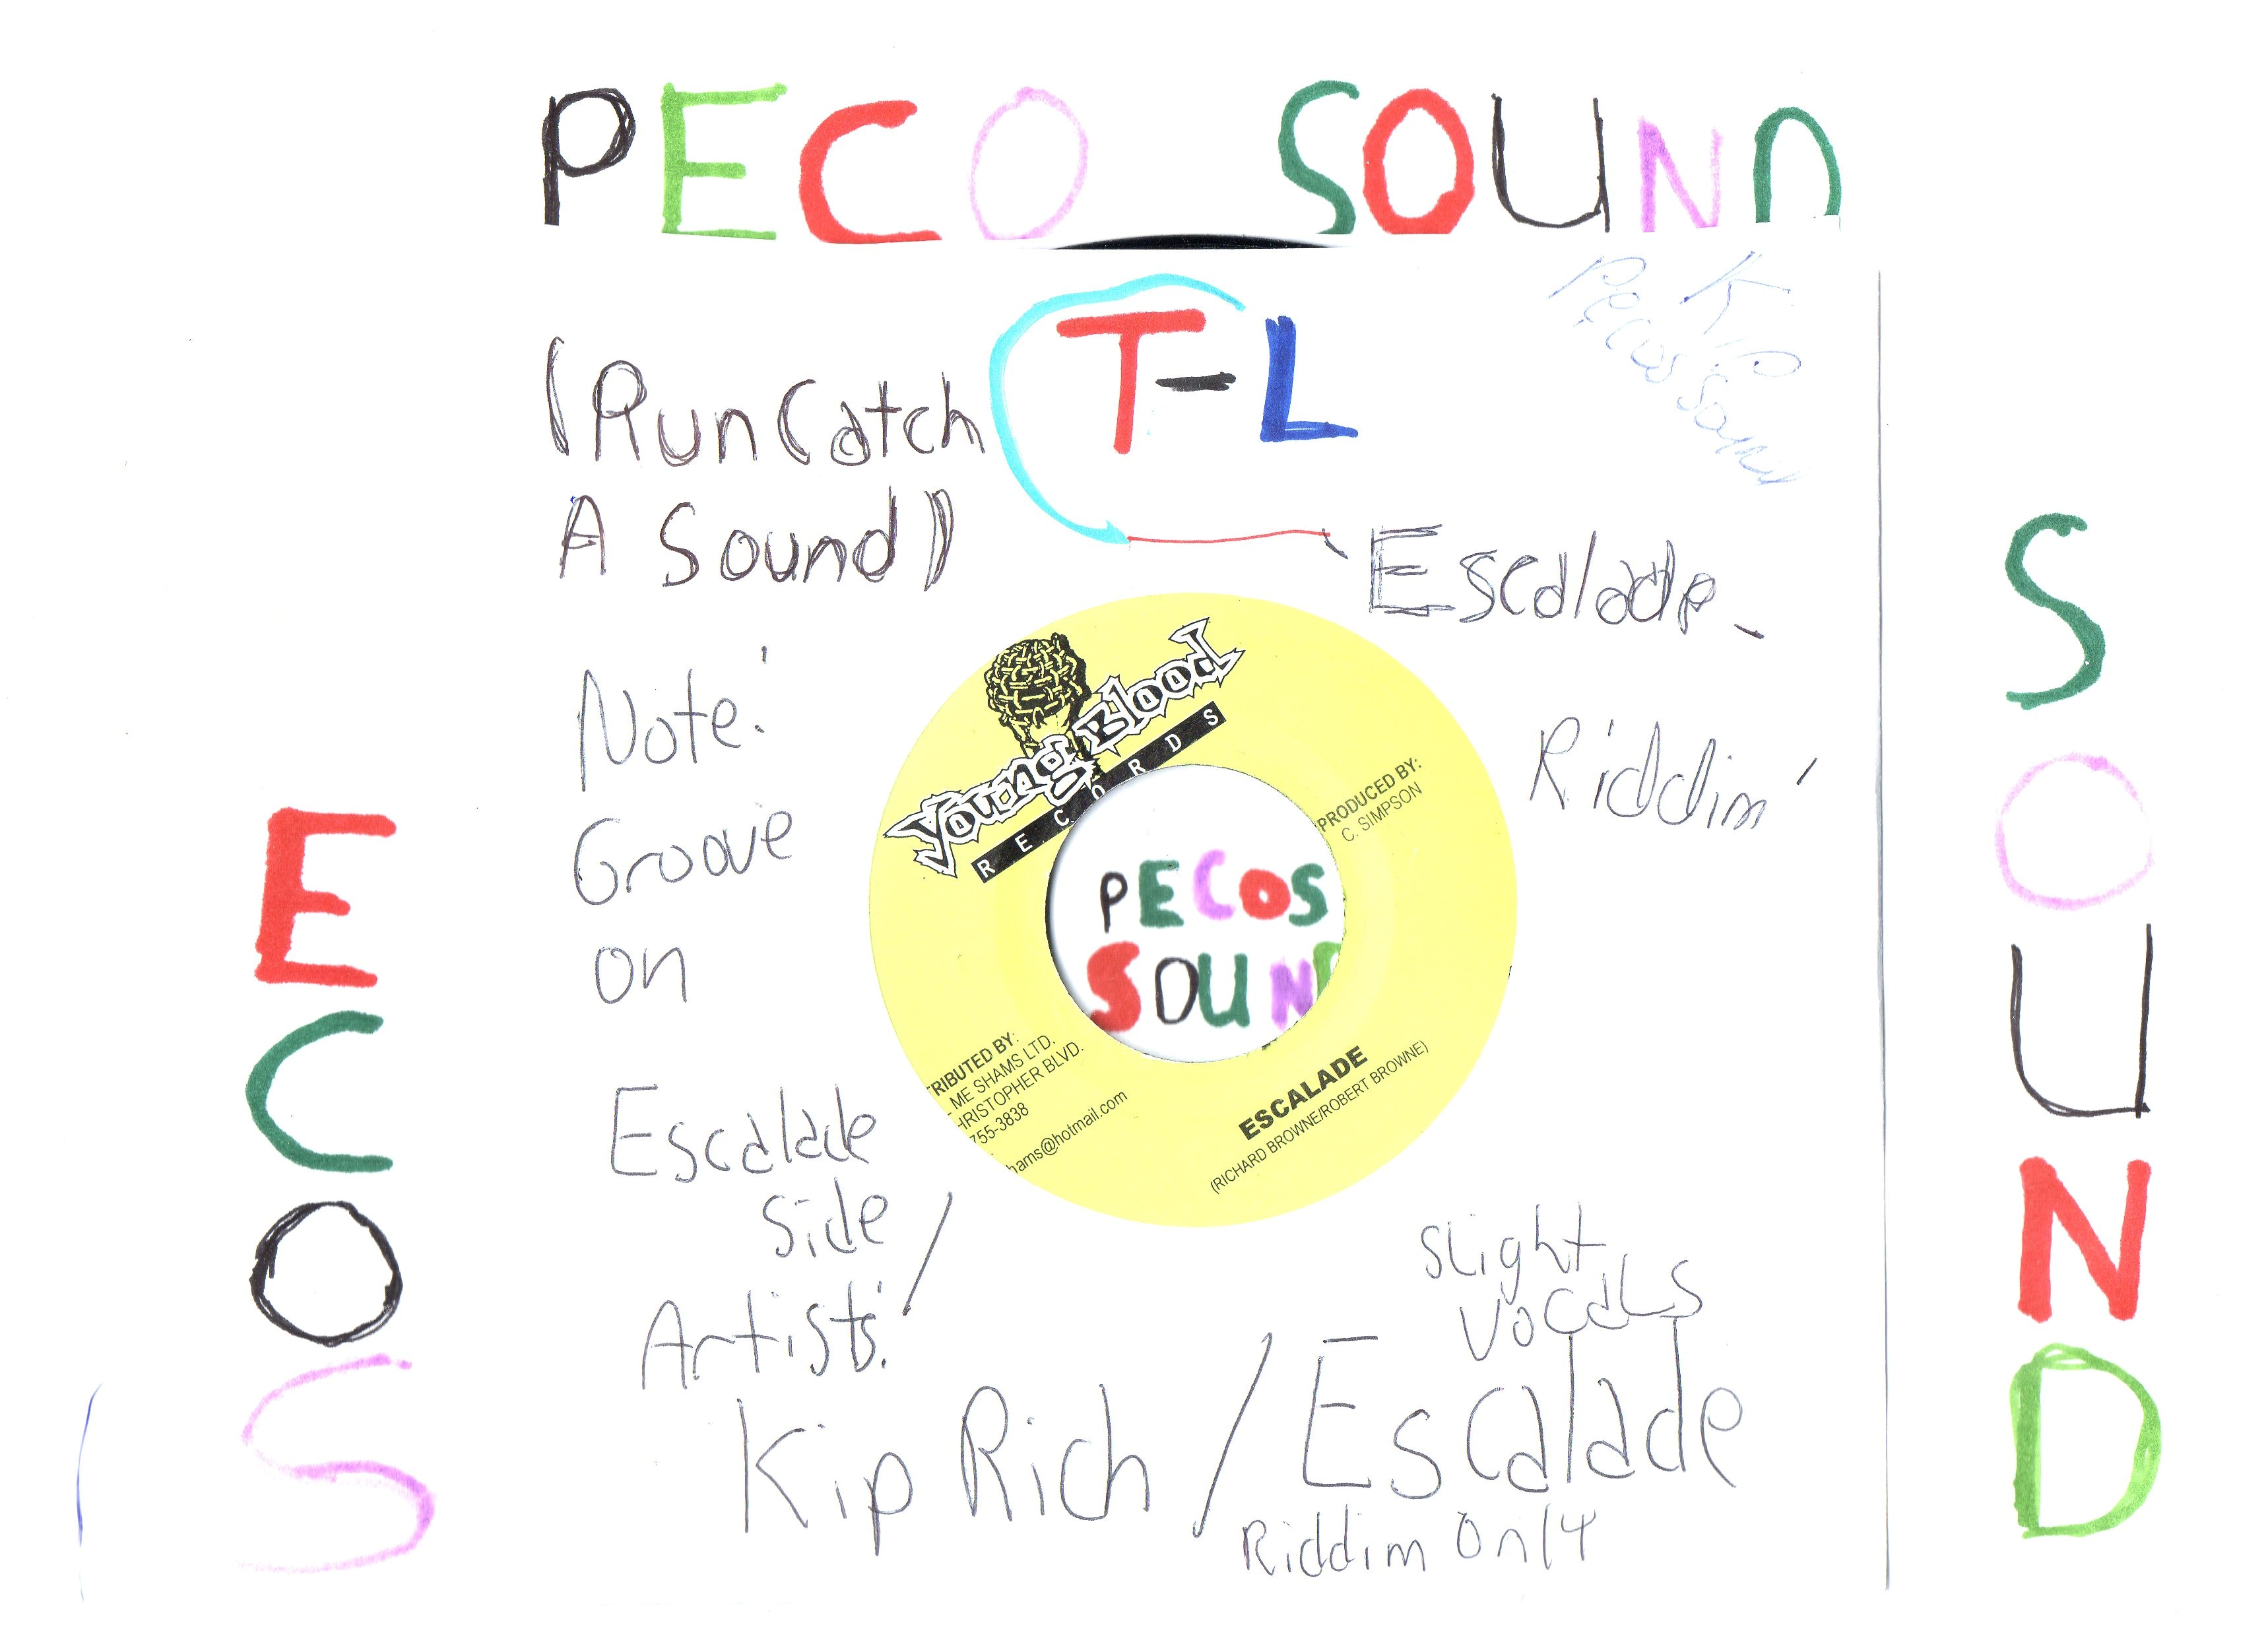 PECO SOUND
T-L
K
Pecos Sound
(Run Catch
A Sound)
Escalade-
Note:
Riddim
Groove
on
Young Blood
RECORDS
PRODUCED BY:
C. SIMPSON
PECOS
SOUND
TRIBUTED BY:
ME SHAMS LTD.
HRISTOPHER BLVD.
755-3838
hams@hotmail.com
ESCALADE
(RICHARD BROWNE/ROBERT BROWNE)
Escalade
side
Artists:
Kip Rich / Escalade
Slight
Vocals
Riddim Only
ECOS
SOUND